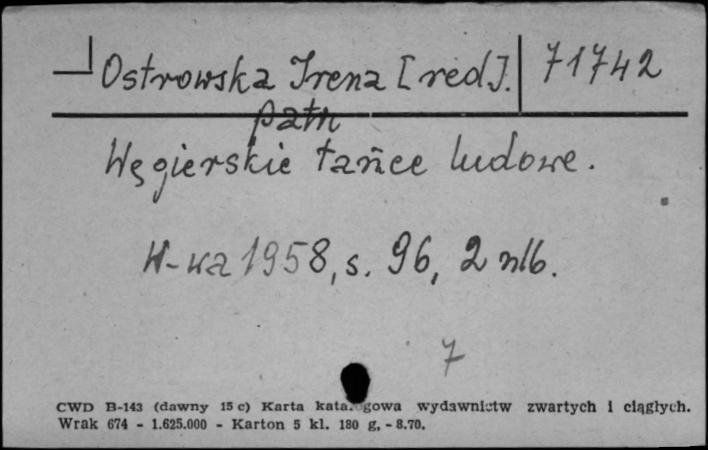 Ostrowska Irena [red]. 71742
patrz
Węgierskie tańce ludowe.
W-wa 1958, s. 96, 2 nlb.
7
CWD B-143 (dawny 15 c) Karta katalogowa wydawnictw zwartych i ciągłych.
Wrak 674 - 1.625.000 - Karton 5 kl. 180 g. - 8.70.